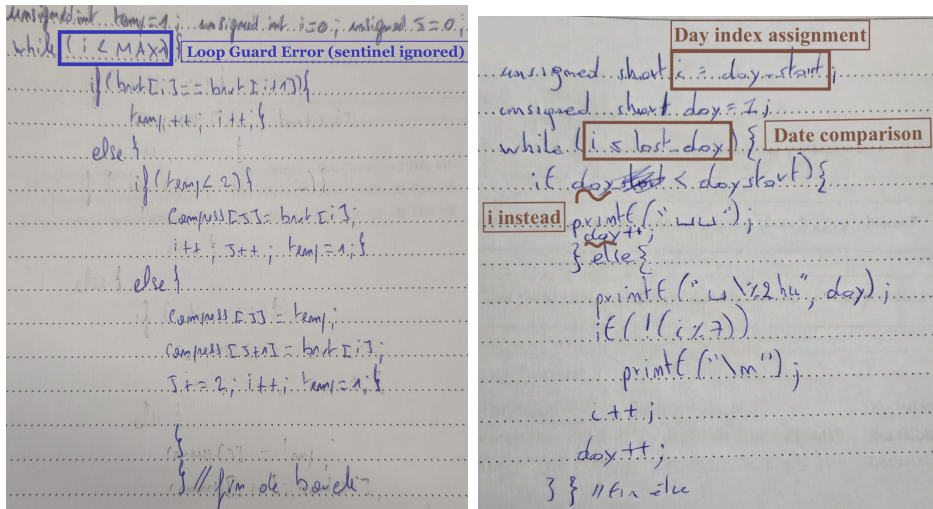 unsigned int temp=1; unsigned int i=0; unsigned J=0;
while (i < MAX1) {
Loop Guard Error (sentinel ignored)
if(brut[i]== brut[i+1]){
temp++; i++;}
else {
if(temp<2){
compress[J]= brut[i];
i++; J++; temp=1;}
else {
compress[J] = temp;
compress[J+1] = brut[i];
J+=2; i++; temp=1;}
}
} // fin de boucle
Day index assignment
unsigned short i = day-start;
unsigned short day = 1;
while (i ≤ last-day) {
Date comparison
if day < daystart) {
i instead
printf("␣␣␣");
day++;
} else {
printf("␣\%2hu", day);
if(!(i%7))
printf("\n");
i++;
day++;
} } // fin else